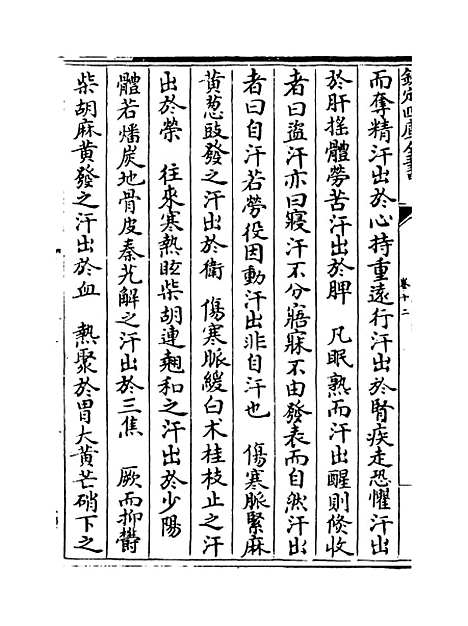 欽定四庫全書
卷十二
而奪精汗出於心持重遠行汗出於腎疾走恐懼汗出
於肝搖體勞苦汗出於脾　凡眠熟而汗出醒則倏收
者曰盜汗亦曰寢汗不分寤寐不由發表而自然汗出
者曰自汗若勞役因動汗出非自汗也　傷寒脈緊麻
黄葱豉發之汗出於衞　傷寒脈緩白术桂枝止之汗
出於榮　往來寒熱眩柴胡連翹和之汗出於少陽
體若燔炭地骨皮秦艽解之汗出於三焦　厥而抑鬱
柴胡麻黄發之汗出於血　熱聚於胃大黄芒硝下之